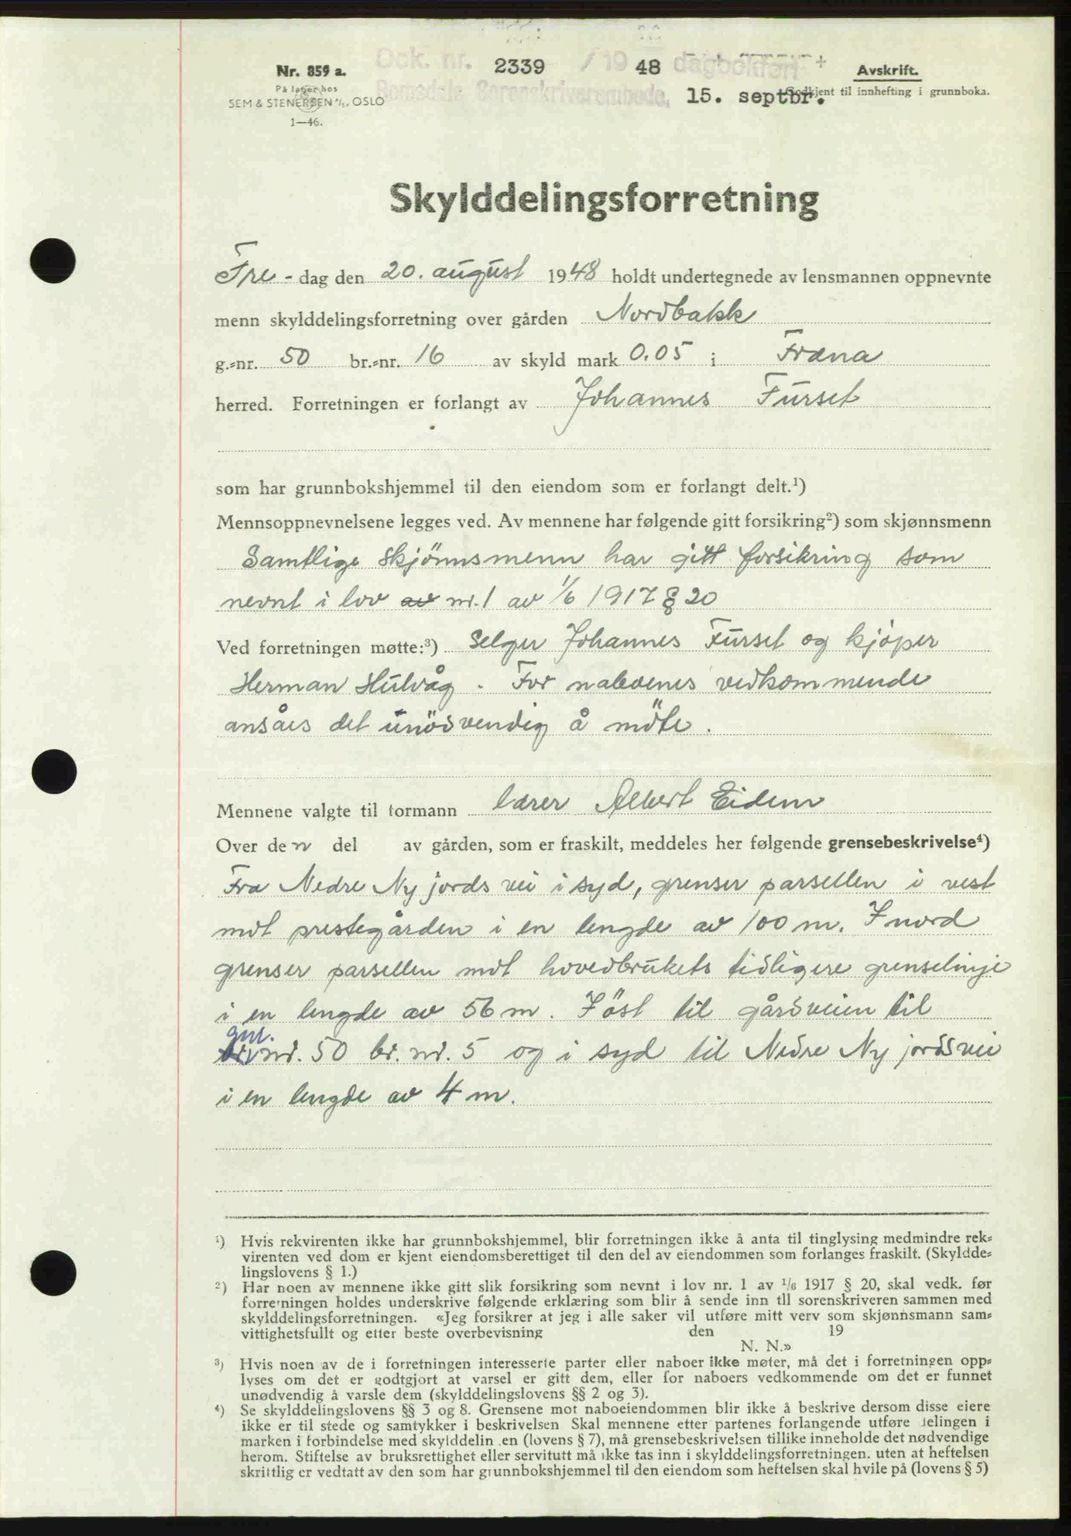 Dok. nr. 2339 / 19 48 dagbokført
Nr. 859 a.
Avskrift.
På lager hos
Romsdals Sorenskriverembede, 15. septbr.
Godkjent til innhefting i grunnboka.
SEM & STENERSEN A/S, OSLO
1—46.
Skylddelingsforretning
Fre - dag den 20. august 1948 holdt undertegnede av lensmannen oppnevnte
menn skylddelingsforretning over gården Nordbakk
g.-nr. 50 br.-nr. 16 av skyld mark 0.05 i Fræna
herred. Forretningen er forlangt av Johannes Furset
som har grunnbokshjemmel til den eiendom som er forlangt delt.¹)
Mennsoppnevnelsene legges ved. Av mennene har følgende gitt forsikring²) som skjønnsmenn
Samtlige skjønnsmenn har gitt forsikring som
nevnt i lov av nr. 1 av 1/6 1917 § 20
Ved forretningen møtte:³) Selger Johannes Furset og kjøper
Herman Hulvåg. For naboenes vedkommende
ansåes det unödvendig å möte.
Mennene valgte til formann lærer Albert Eidem
Over den del av gården, som er fraskilt, meddeles her følgende grensebeskrivelse⁴)
Fra Nedre Nyjords vei i syd, grenser parsellen i vest
mot prestegården i en lengde av 100 m. I nord
grenser parsellen mot hovedbrukets tidligere grenselinje
i en lengde av 56 m. I öst til gårdsveien til
gnr.
nr. 50 br. nr. 5 og i syd til Nedre Nyjordsvei
i en lengde av 4 m.
¹) Hvis rekvirenten ikke har grunnbokshjemmel, blir forretningen ikke å anta til tinglysing medmindre rek-
virenten ved dom er kjent eiendomsberettiget til den del av eiendommen som forlanges fraskilt. (Skyldde-
lingslovens § 1.)
²) Har noen av mennene ikke gitt slik forsikring som nevnt i lov nr. 1 av 1/6 1917 § 20, skal vedk. før
forretningen holdes underskrive følgende erklæring som blir å sende inn til sorenskriveren sammen med
skylddelingsforretningen. «Jeg forsikrer at jeg i alle saker vil utføre mitt verv som skjønnsmann sam-
vittighetsfullt og etter beste overbevisning den 19
N. N.»
³) Hvis noen av de i forretningen interesserte parter eller naboer ikke møter, må det i forretningen opp-
lyses om det er godtgjort at varsel er gitt dem, eller for naboers vedkommende om det er funnet
unødvendig å varsle dem (skylddelingslovens §§ 2 og 3).
⁴) Se skylddelingslovens §§ 3 og 8. Grensene mot naboeiendommen blir ikke å beskrive dersom disse eiere
ikke er til stede og samtykker i beskrivelsen Skal mennene etter partenes forlangende utføre delingen i
marken i forbindelse med skylddelin en (lovens § 7), må grensebeskrivelsen tillike inneholde det nødvendige
herom. Stiftelse av bruksrettighet eller servitutt må ikke tas inn i skylddelingsforretningen. uten at heftelsen
skriftlig er vedtatt av den som har grunnbokshjemmel til den eiendom som heftelsen skal hvile på (lovens § 5)